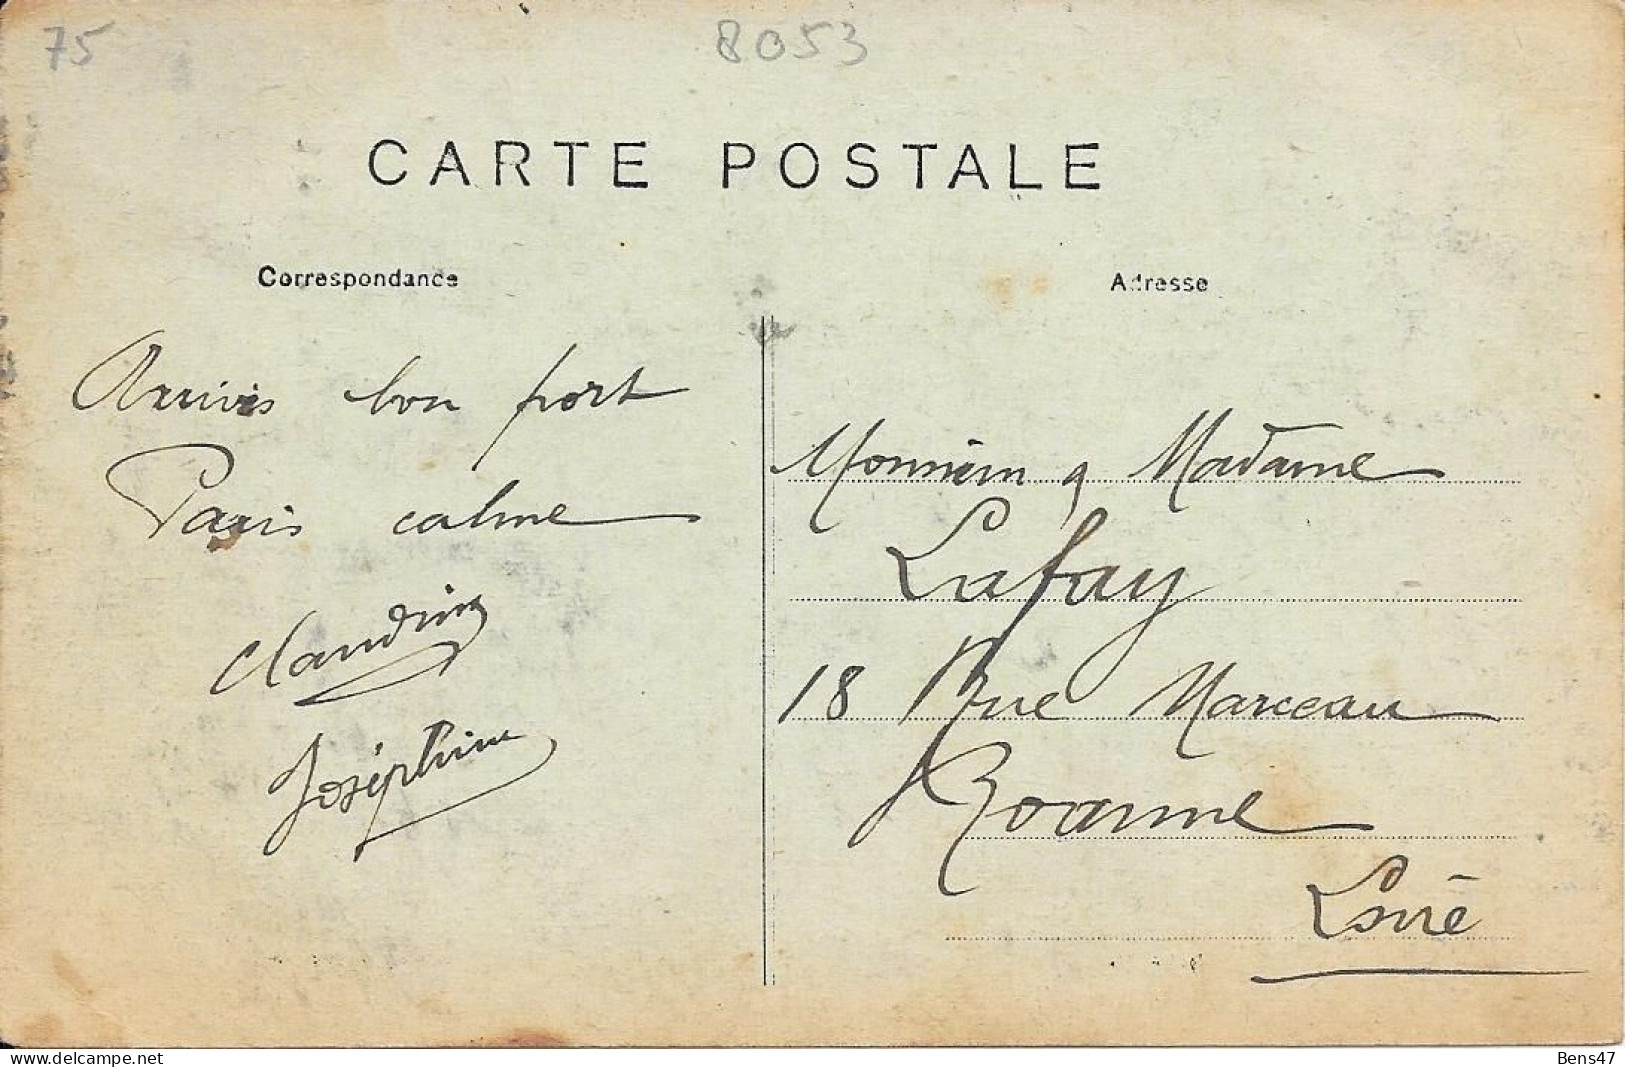 75
8053
CARTE POSTALE
Correspondance
Adresse
Arrivés bon port
Paris calme
Claudine
Joséphine
Monsieur & Madame
Lafay
18 Rue Marceau
Roanne
Loire
delcampe.net
Bens47